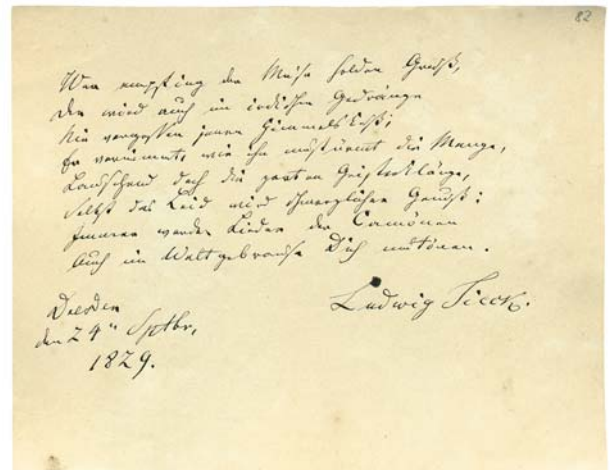 82
Wer empfing der Muse holden Gruß,
Der wird auch im irdischen Gedränge
Nie vergessen jenen Himmels Kuß;
Er vernimmt, wie ihn umstürmt die Menge,
Lauschend doch die zarten Geisterklänge,
Selbst das Leid wird schmerzlicher Genuß:
werden Lieder der Camönen
Auch im Weltgebrause Dich umtönen.
Dresden
den 24n Sptbr,
1829.
Ludwig Tieck.